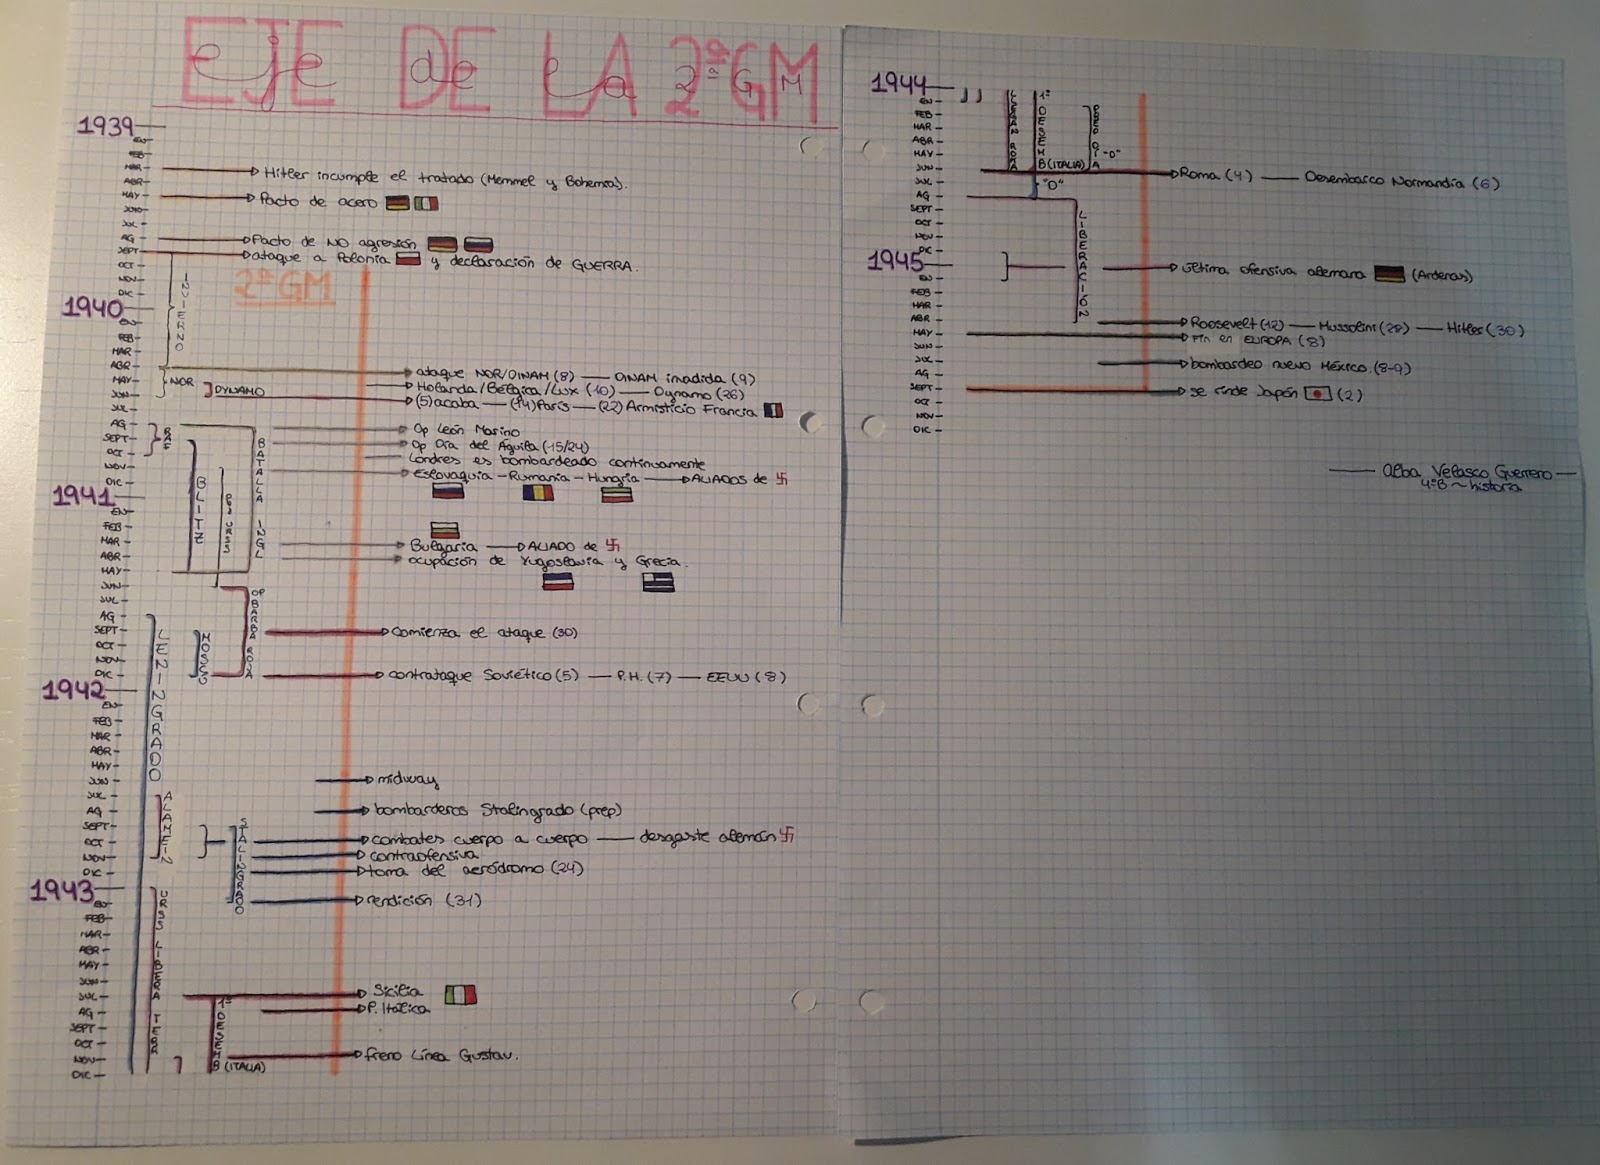 EJE DE LA 2ªGM
1939
EN
FEB
MAR
Hitler incumple el tratado (Memmel y Bohemia).
ABR
MAY
Pacto de acero
JUNIO
JUL
AG
Pacto de NO agresión
SEPT
ataque a Polonia y declaración de GUERRA.
OCT
NOV
DIC
INVIERNO
2ªGM
1940
EN
FEB
MAR
ABR
ataque NOR/DINAM (8) — DINAM invadida (9)
MAY
NOR
DYNAMO
Holanda/Bélgica/Lux (10) — Dynamo (26)
JUN
(5) acaba — (14) París — (22) Armisticio Francia
JUL
AG
RAF
Op León Marino
SEPT
Op Día del Águila (-15/24)
OCT
Londres es bombardeado continuamente
NOV
Eslovaquia - Rumanía - Hungría → ALIADOS de 卐
DIC
BLITZ
BATALLA INGL
1941
EN
FEB
MAR
Bulgaria → ALIADO de 卐
ABR
ocupación de Yugoslavia y Grecia.
MAY
JUN
JUL
OP BARBA ROJA
AG
LENINGRADO
SEPT
MOSCÚ
comienza el ataque (30)
OCT
NOV
DIC
contrataque Soviético (5) — P.H. (7) — EEUU (8)
1942
EN
FEB
MAR
ABR
MAY
JUN
midway
JUL
ALAMEIN
AG
bombarderos Stalingrado (prep)
SEPT
STALINGRADO
OCT
combates cuerpo a cuerpo — desgaste alemán 卐
NOV
contraofensiva
DIC
toma del aeródromo (24)
1943
EN
rendición (31)
FEB
MAR
ABR
MAY
JUN
URSS LIBERA TERR
JUL
Sicilia
AG
P. Itálica
SEPT
OCT
1º DESEMB (ITALIA)
NOV
freno Línea Gustav.
DIC
1944
EN
FEB
MAR
ABR
MAY
1º DESEMB (ITALIA)
"D"
JUN
Roma (4) — Desembarco Normandía (6)
JUL
"D"
AG
SEPT
OCT
NOV
DIC
LIBERACIÓN
1945
última ofensiva alemana (Ardenas)
EN
FEB
MAR
ABR
Roosevelt (12) — Mussolini (28) — Hitler (30)
MAY
Fin en EUROPA (8)
JUN
JUL
bombardeo nuevo México. (8-9)
AG
SEPT
se rinde Japón (2)
OCT
NOV
DIC
— Alba Velasco Guerrero —
4ºB ~ historia